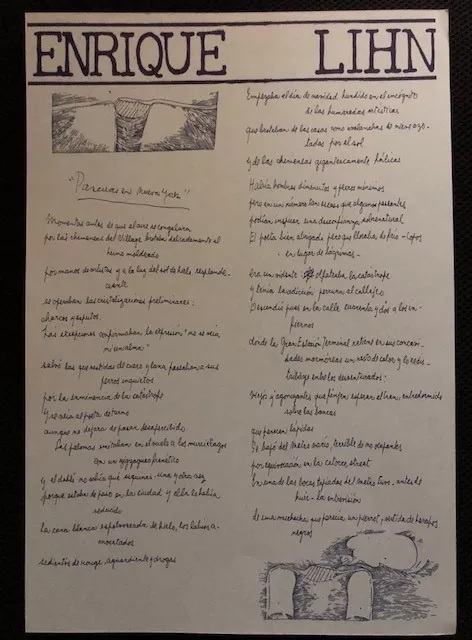 ENRIQUE LIHN
"Pascuas en Nueva York"
Momentos antes de que el aire se congelara
por las chimeneas del Village brotaba delicadamente el
humo moldeado
por manos de artistas y a la luz del sol de hielo, resplande-
ciente
se operaban las cristalizaciones preliminares:
charcos y esputos.
Las excepciones confirmaban la expresión "no se veía
ni un alma"
salvo las gay vestidas de cuero y lana, paseaban a sus
perros inquietos
por la inminencia de la catástrofe
Y se veía al poeta de turno
aunque no dejara de pasar desapercibido
Las palomas imitaban en el vuelo a los murciélagos
con un zigzagueo frenético
y el diablo no sabía qué esquinas una y otra vez
porque estaba de paso en la ciudad y ella le había
seducido
la cara blanca espolvoreada de hielo, los labios a-
moratados
sedientos de rouge, aguardiente y drogas
Empezaba el día de navidad hundido en el incógnito
de las humaradas místicas
que brotaban de las casas como avalanchas de nieve azo-
tadas por el sol
y de las chimeneas gigantescamente fálicas
Había hombres diminutos y perros mínimos
pero en un número tan escaso que algunos pasantes
podían inspirar una desconfianza sobrenatural
El poeta bien abrigado pero que lloraba, de frío - copos
en lugar de lágrimas -
era un vidente: olfateaba la catástrofe
y tenía la adicción perruna al callejeo
Descendió pues en la calle cuarenta y dos a los in-
fiernos
donde la Gran Estación Terminal retiene en sus concavi-
dades marmóreas un resto de calor y lo redis-
tribuye entre los desventurados:
viejos y agonizantes que fingen esperar el tren, entredormidos
sobre las bancas
que parecen lápidas
Se bajó del metro vacío, terrible de no ocupantes
por equivocación en la catorce street
En una de las bocas tapiadas del metro tuvo, antes de
huir - la entrevisión
de una muchacha que parecía un pierrot, vestida de harapos
negros